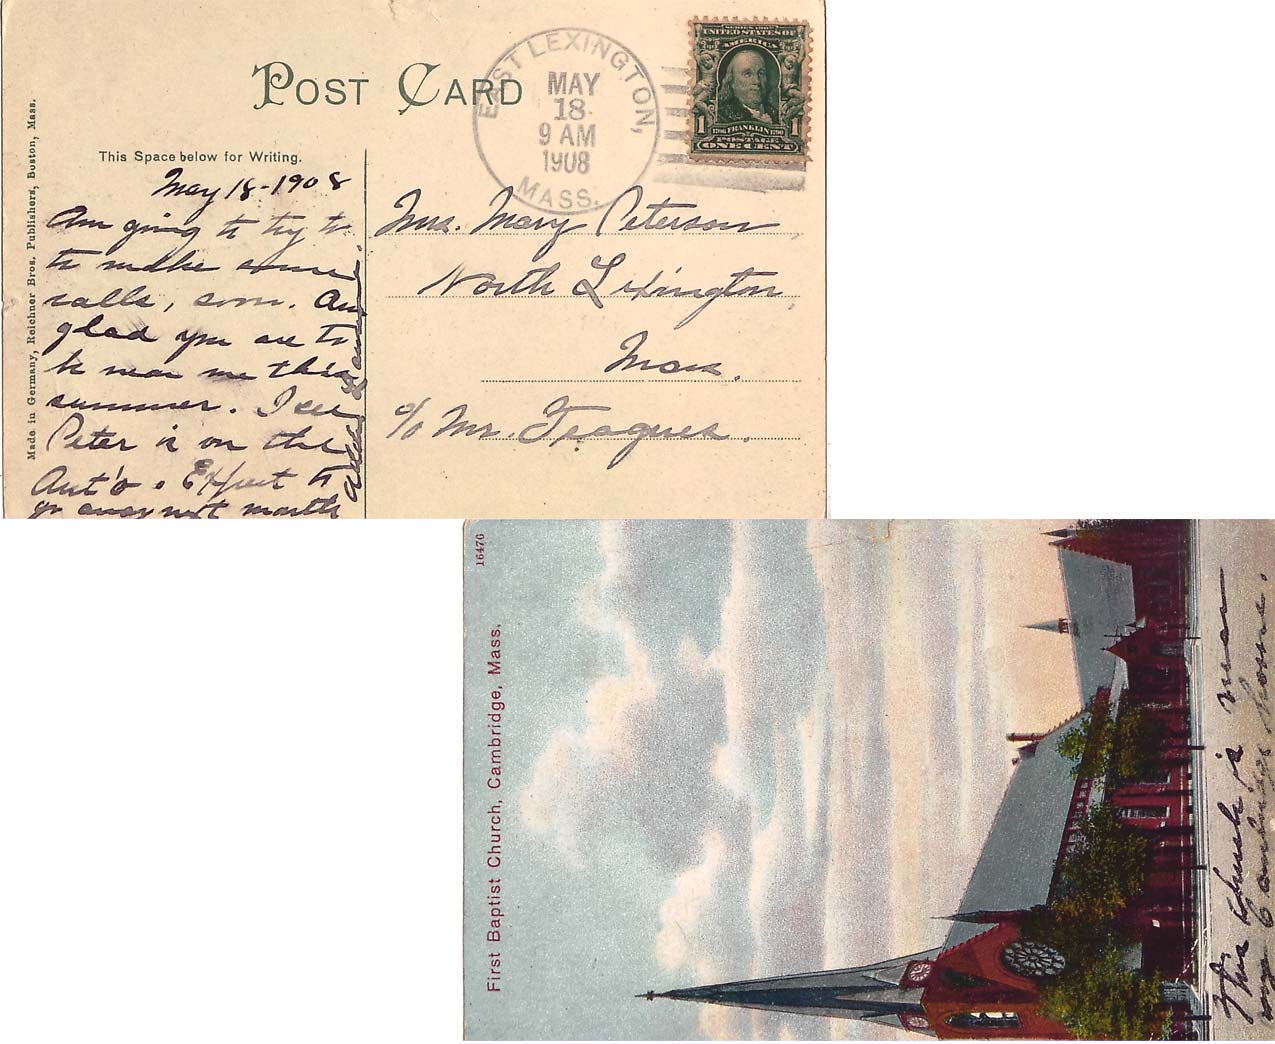 POST CARD
EAST LEXINGTON,
MAY
18
9 AM
1908
MASS.
SERIES 1902
UNITED STATES OF
AMERICA
1706 FRANKLIN 1790
1 POSTAGE 1
ONE CENT
Made in Germany, Reichner Bros. Publishers, Boston, Mass.
This Space below for Writing.
May 18-1908
Am going to try to
to make some
calls, soon. Am
glad you are to
be near me this
summer. I see
Peter is on the
Aut'o. Expect to
go away next month
Mrs. Mary Peterson
North Lexington,
Mass.
c/o Mr. Teagues.
16476
First Baptist Church, Cambridge, Mass.
This Church is near
my Cambridge home.